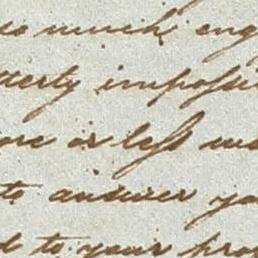 so much eng
tterly impossi
ore or less
to answer yo
d to your pro